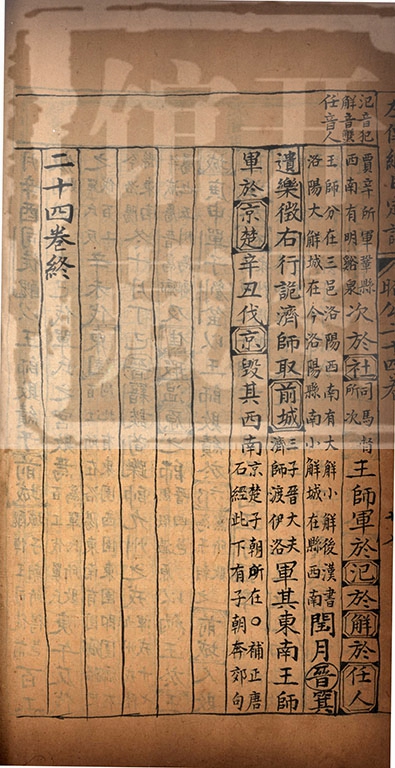 氾音犯
解音蟹
任音人
賈辛所軍鞏縣西南有明谿泉次於社司馬督所次王師軍於氾於解於任人
王師分在三邑洛陽西南有大解小解後漢書洛陽大解城在今洛陽縣南小解城在縣西南閏月晉箕
遺樂徵右行詭濟師取前城三子晉大夫濟師渡伊洛軍其東南王師
軍於京楚辛丑伐京毀其西南京楚子朝所在○補正唐石經此下有子朝奔郊句
二十四卷終